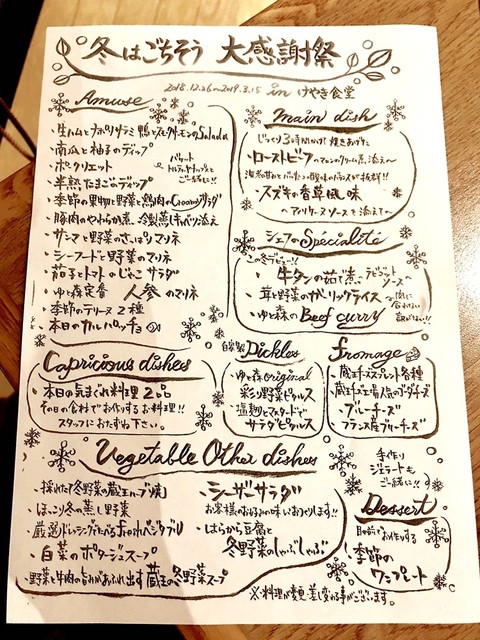 冬はごちそう 大感謝祭
2018.12.26〜2019.3.15 in けやき食堂
Amuse
・生ハムとナポリサラミ 鴨とスモークサーモンのSalada
・南瓜と柚子のディップ
・ポークリエット
バケット
ご一緒に!!
・半熟たまごのディップ
・季節の果物と野菜と鶏肉のCreamyサラダ
・豚肉のやわらか煮、冷製蒸しキャベツ添え
・サンマと野菜のさっぱりマリネ
・シーフードと野菜のマリネ
・茄子とトマトのじゃこサラダ
・ゆと森定番 人参のマリネ
・季節のテリーヌ2種
・本日のカルパッチョ
Main dish
じっくり3時間かけ焼きあげた
・ローストビーフ
・スズキの香草風味
〜アメリケーヌソースを添えて〜
シェフのSpécialité
冬デビュー!!
・牛タンの茹で煮 ラビゴットソース
・茸と野菜のガーリックライス
お肉に合わない訳がない!!
・ゆと森のBeef curry
Capricious dishes
・本日の気まぐれ料理2品
その日の食材でお作りするお料理!!
スタッフにおたずね下さい。
自家製 Pickles
・ゆと森original
彩り野菜ピクルス
・塩麹とマスタードで
サラダピクルス
fromage
・蔵王チーズスプレッド各種
・蔵王チーズ工場人気のゴーダチーズ
・ブルーチーズ
・フランス産ブルーチーズ
Vegetable Other dishes
・採れた!「冬野菜の蔵王ハーブ焼」
・ほっこり冬の蒸し野菜
・厳選ドレッシングでたべるfreshベジタブル
・白菜のポタージュスープ
・野菜と牛肉の旨みがあふれ出す蔵王の冬野菜スープ
・シーザーサラダ
お客様のお好みの味いおつけします!!
・はらから豆腐と
冬野菜のしゃぶしゃぶ
手作り
ジェラートも
ご一緒に!!
Dessert
目の前でお作りする
・季節の
ワンプレート
※料理が変更・差し変わる事がございます。